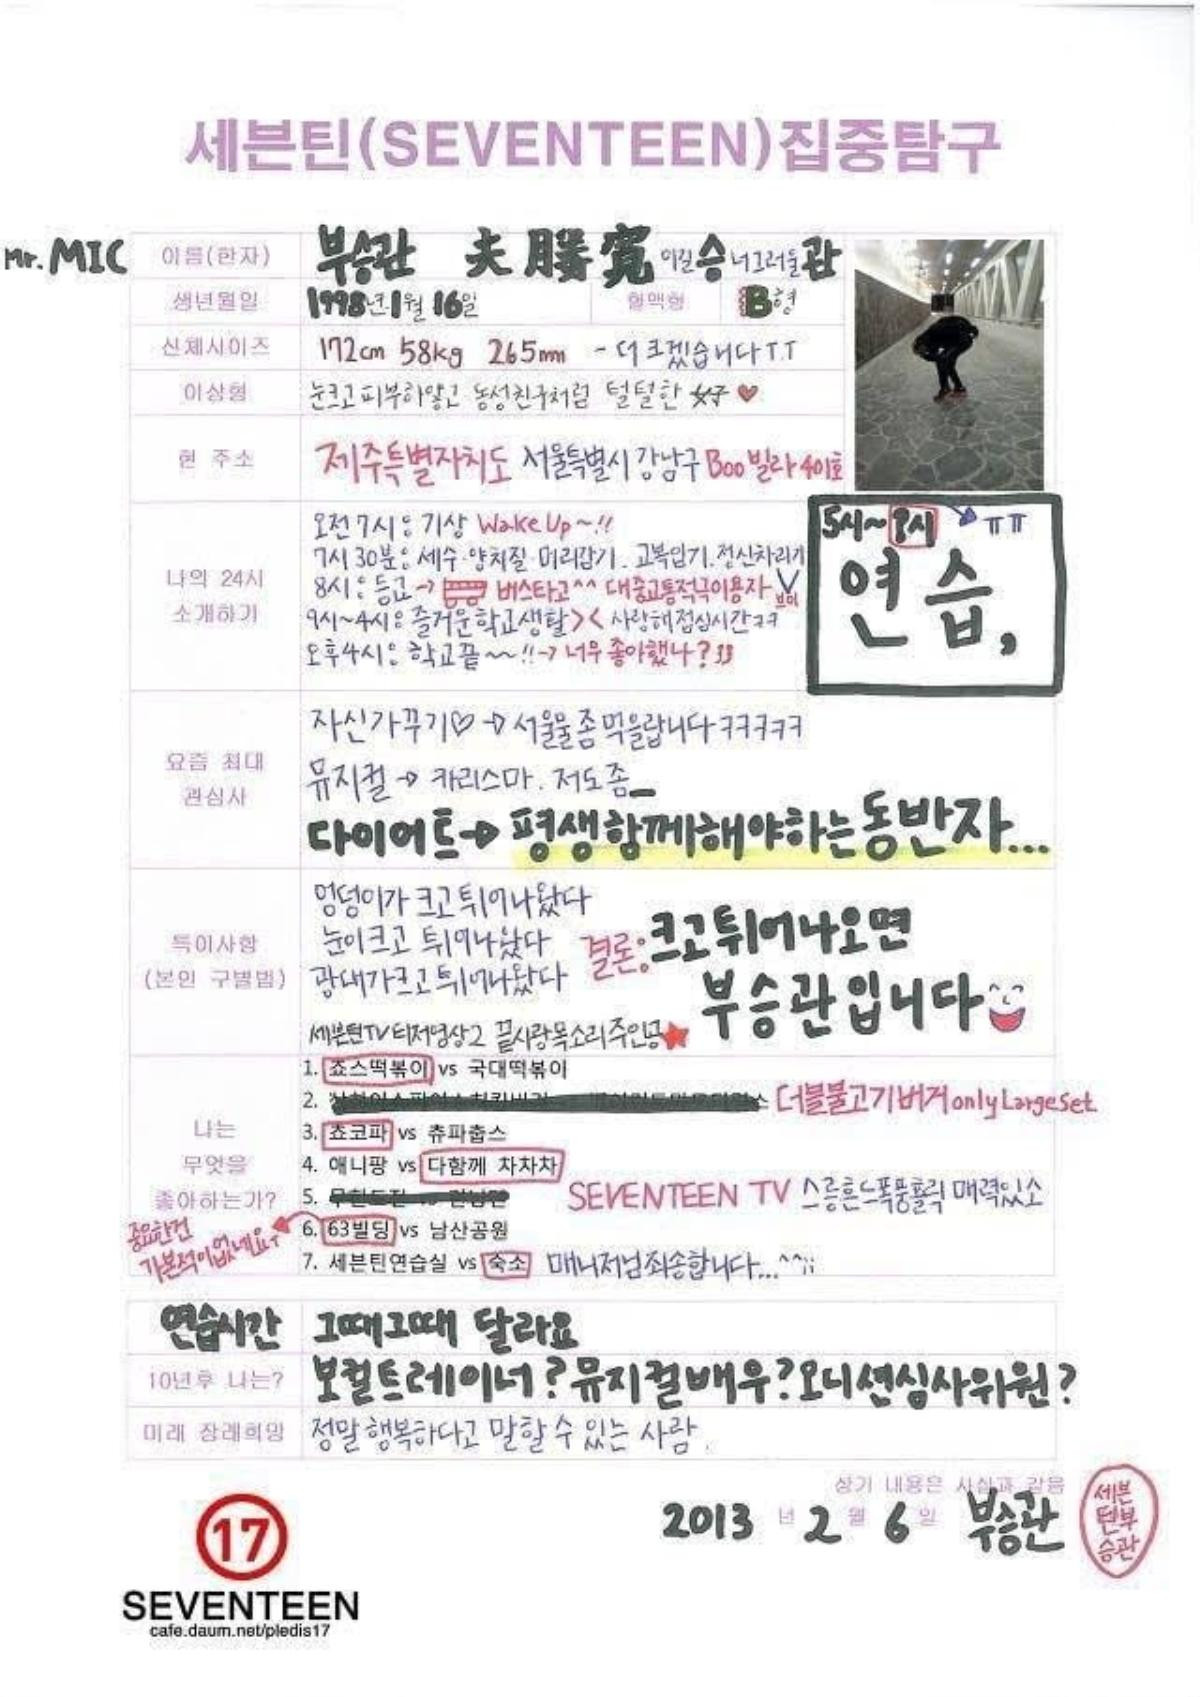 세븐틴(SEVENTEEN)집중탐구
Mr. MIC
이름(한자) 부승관 夫勝寬 이길승 너그러울관
생년월일 1998년 1월 16일 혈액형 B형
신체사이즈 172cm 58kg 265mm - 더 크겠습니다 T.T
이상형 눈크고 피부하얗고 동성친구처럼 털털한 女子 ♥
현 주소 제주특별자치도 서울특별시 강남구 Boo빌라 401호
나의 24시
소개하기
오전 7시: 기상 Wake Up~!!
7시 30분: 세수·양치질·머리감기. 교복입기.정신차리기
8시: 등교→ 버스타고^^ 대중교통적극이용자 V
브이
9시~4시: 즐거운학교생활>< 사랑해점심시간ㅋㅋ
오후4시: 학교끝~~!!→너무좋아했나?
5시~9시 → ㅠㅠ
연습,
요즘 최대
관심사
자신가꾸기♡→서울물좀먹을랍니다ㅋㅋㅋㅋㅋ
뮤지컬→카리스마. 저도좀_
다이어트→평생함께해야하는동반자...
특이사항
(본인 구별법)
엉덩이가 크고튀어나왔다
눈이크고 튀어나왔다
광대가크고튀어나왔다
결론:크고튀어나오면
부승관입니다
세븐틴TV티저영상2 끝사랑목소리주인공★
나는
무엇을
좋아하는가?
1. 죠스떡볶이 vs 국대떡볶이
2. 더블불고기버거 only Large Set
3. 쵸코파 vs 츄파춥스
4. 애니팡 vs 다함께 차차차
5. SEVENTEEN TV 스릉흔느 폭풍홀릭 매력있소
6. 63빌딩 vs 남산공원
중요한건
가본적이없네요?
7. 세븐틴연습실 vs 숙소 매니저님죄송합니다...^^;;
연습시간 그때그때 달라요
10년후 나는? 보컬트레이너?뮤지컬배우?오디션심사위원?
미래 장래희망 정말행복하다고 말할 수 있는 사람.
상기 내용은 사실과 같음
2013 년 2 월 6 일 부승관
세븐
틴부
승관
17
SEVENTEEN
cafe.daum.net/pledis17